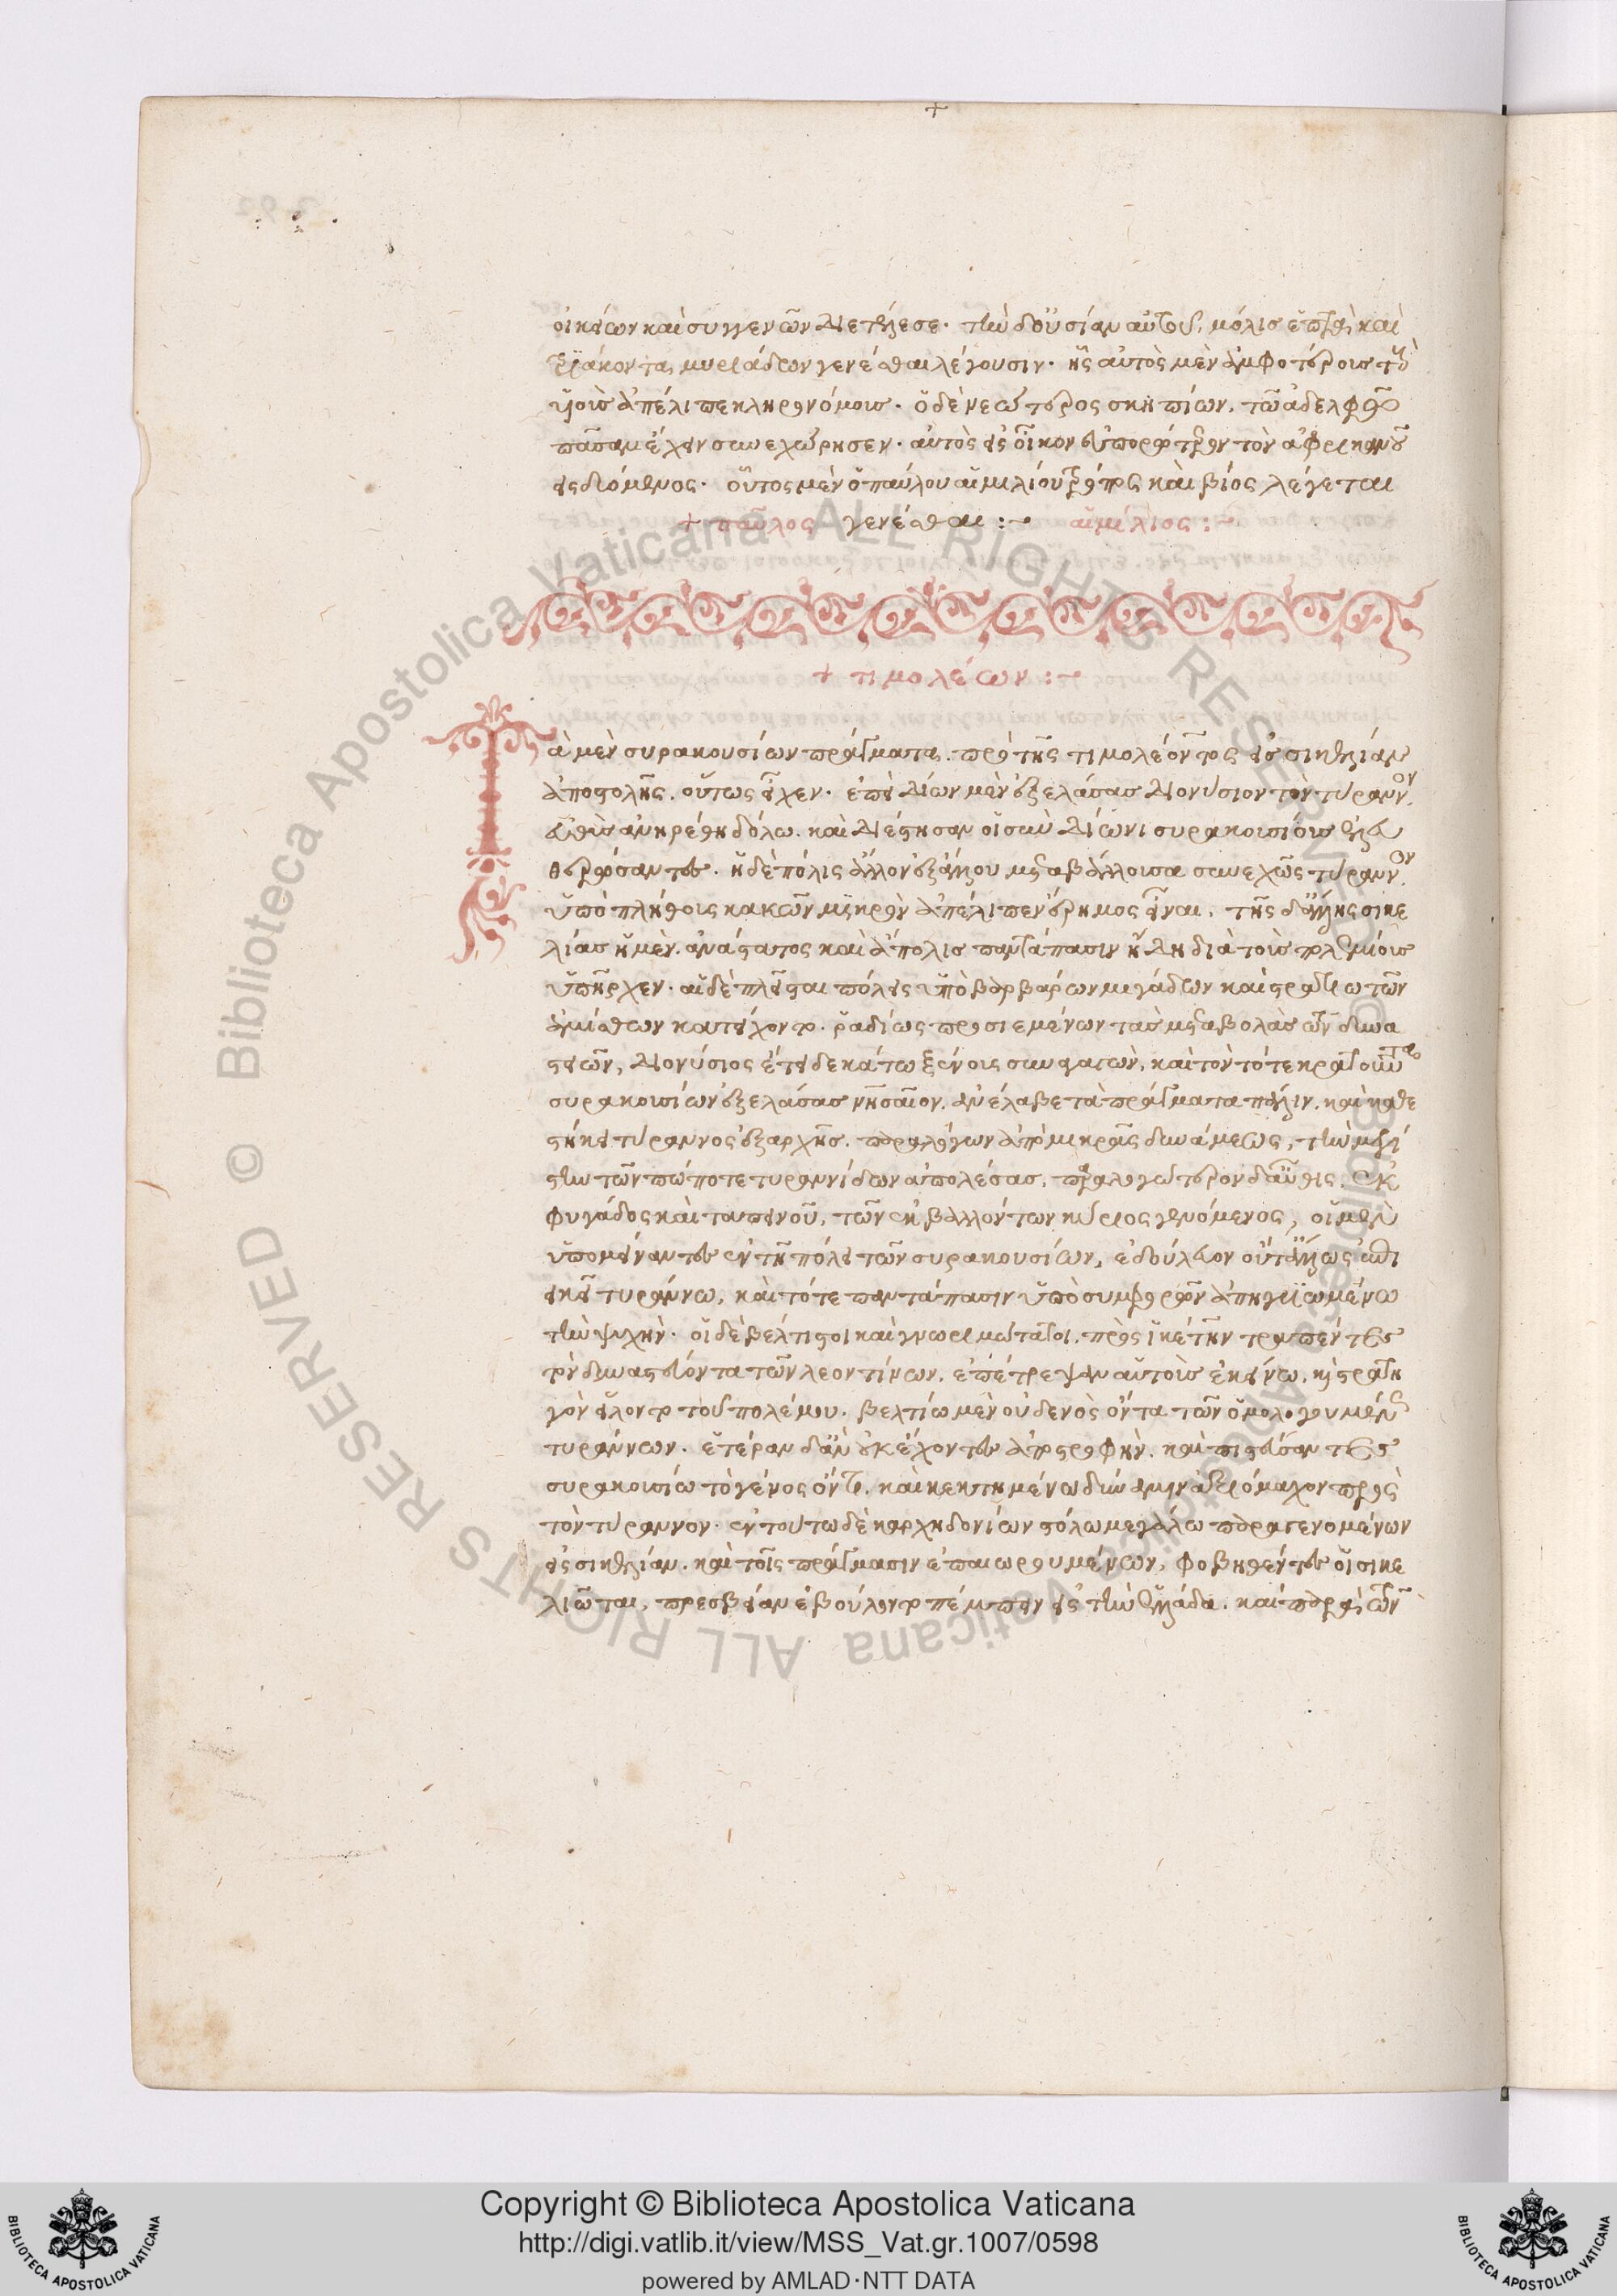 οἰκείων καὶ συγγενῶν διετέλεσε. τὴν δ' οὐσίαν αὐτοῦ, μόλις ἑπτὰ καὶ
τριάκοντα μυριάδων γενέσθαι λέγουσιν. ἧς αὐτὸς μὲν ἀμφοτέροις τοῖς
υἱοῖς ἀπέλιπε κληρονόμοις. ὁ δὲ νεώτερος σκηπίων, τῶ ἀδελφῶ
πᾶσαν ἔχειν συνεχώρησεν. αὐτὸς εἰς οἶκον εὐπορώτερον τὸν ἀφρικανοῦ
δεδομένος. οὗτος μὲν ὁ παύλου αἰμιλίου τρόπος καὶ βίος λέγεται
+ παῦλος γενέσθαι :~ αἰμίλιος :~
+ τιμολέων :~
Τὰ μὲν συρακουσίων πράγματα, πρὸ τῆς τιμολέοντος εἰς σικελίαν
ἀποστολῆς, οὕτως εἶχεν. ἐπεὶ δίων μὲν ἐξελάσας διονύσιον τὸν τύραννον,
εὐθὺς ἀνηρέθη δόλω. καὶ διέστησαν οἱ σὺν δίωνι συρακουσίους ἐλευ
θερώσαντες. ἡ δὲ πόλις ἄλλον ἐξ ἄλλου μεταβάλλουσα συνεχῶς τύραννον,
ὑπὸ πλήθους κακῶν μικρὸν ἀπέλιπεν ἔρημος εἶναι. τῆς δ' ἄλλης σικε
λίας ἡ μὲν, ἀνάστατος καὶ ἄπολις παντάπασιν ἤδη διὰ τοὺς πολέμους
ὑπῆρχεν. αἱ δὲ πλεῖσται πόλεις ὑπὸ βαρβάρων μιγάδων καὶ στρατιωτῶν
ἀμίσθων κατείχοντο. ῥαδίως προσιεμένων τὰς μεταβολὰς τῶν δυνα
στειῶν, διονύσιος ἔτει δεκάτω ξένους συναγαγὼν, καὶ τὸν τότε κρατοῦντα
συρακουσίων ἐξελάσας νησαῖον, ἀνέλαβε τὰ πράγματα πάλιν, καὶ καθε
στήκει τύραννος ἐξ ἀρχῆς. παραλόγων ἀπὸ μικρᾶς δυνάμεως, τὴν μεγί
στην τῶν πώποτε τυραννίδων ἀπολέσας, παραλογώτερον δ' αὖθις, ἐκ
φυγάδος καὶ ταπεινοῦ, τῶν ἐκβαλλόντων κύριος γενόμενος, οἱ μὲν
ὑπομείναντες ἐν τῆ πόλει τῶν συρακουσίων, ἐδούλευον οὔτ' ἄλλως ἐπι
εικεῖ τυράννω, καὶ τότε παντάπασιν ὑπὸ συμφορῶν ἀπηγριωμένω
τὴν ψυχήν. οἱ δὲ βέλτιστοι καὶ γνωριμώτατοι, πρὸς ἱκέτην τραπέντες
τὸν δυναστεύοντα τῶν λεοντίνων, ἐπέτρεψαν αὑτοὺς ἐκείνω, καὶ στρατη
γὸν εἵλοντο τοῦ πολέμου. βελτίω μὲν οὐδενὸς ὄντα τῶν ὁμολογουμένως
τυράννων. ἑτέραν δ' ἂν οὐκ ἔχοντες ἀποστροφὴν. καὶ πιστεύσαντες
συρακουσίω τὸ γένος ὄντι, καὶ κεκτημένω δύναμιν ἀξιόμαχον πρὸς
τὸν τύραννον. ἐν τούτω δὲ καρχηδονίων στόλω μεγάλω παραγενομένων
εἰς σικελίαν, καὶ τοῖς πράγμασιν ἐπαιωρουμένων, φοβηθέντες οἱ σικε
λιῶται, πρεσβείαν ἐβούλοντο πέμπειν εἰς τὴν ἑλλάδα, καὶ παρὰ τῶν
Copyright © Biblioteca Apostolica Vaticana
http://digi.vatlib.it/view/MSS_Vat.gr.1007/0598
powered by AMLAD·NTT DATA